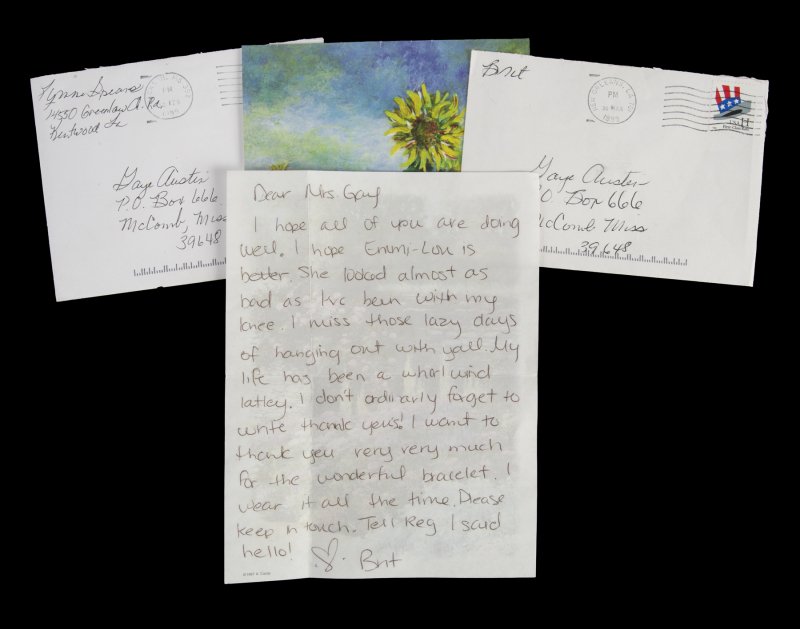 Lynne Spears
14550 Greenlaw Ch. Rd.
Kentwood La
PM
1999
Gaye Austin
P.O. Box 666
McComb, Miss
39648
Brit
NEW ORLEANS, LA
PM
30 MAR
1999
USA
First-Class Rate
Gaye Austin
PO Box 666
McComb Miss
39648
Dear Mrs. Gay
I hope all of you are doing
well. I hope Emmi-Lou is
better. She looked almost as
bad as I've been with my
knee. I miss those lazy days
of hanging out with yall. My
life has been a whirlwind
latley. I don't ordinarly forget to
write thank you's! I want to
thank you very very much
for the wonderful bracelet. I
wear it all the time. Please
keep n touch. Tell Reg I said
hello! Brit